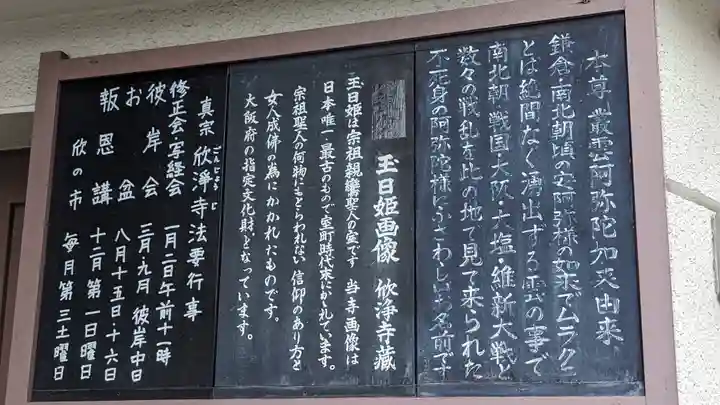 本尊叢雲阿弥陀如来由来
鎌倉・南北朝頃の安阿弥様の如来でムラクモ
とは絶間なく湧出する雲の事で
南北朝・戦国・大阪・大塩・維新大戦と
数々の戦乱を此の地で見て来られた
不死身の阿弥陀様にふさわしいお名前です
玉日姫画像 欣浄寺蔵
玉日姫は宗祖親鸞聖人の室です 当寺画像は
日本唯一最古のもので室町時代末にかかれています。
宗祖聖人の何物にもとらわれない信仰のあり方と
女人成佛の為にかかれたものです。
大阪府の指定文化財となっています。
真宗 欣浄寺法要行事
ごんじょうじ
修正会・写経会 一月二日午前十一時
彼岸会 三月・九月彼岸中日
お盆 八月十五日・十六日
報恩講 十二月第一日曜日
欣の市 毎月第三土曜日